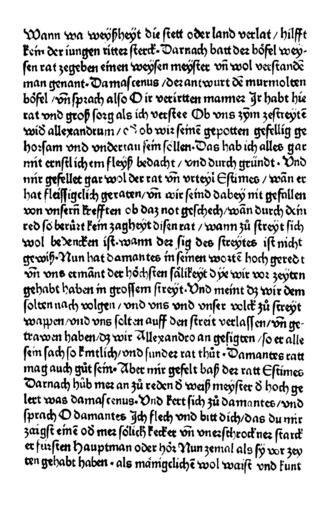 Wann wa weyßheyt die stett oder land verlat / hilfft
kein der iungen ritter sterck. Darnach batt der böfel wey-
sen rat zegeben einen weysen meyster vn̄ wol verstande
man genant. Damascenus / der antwurt dē murmolten
böfel / vn̄ sprach also O ir verirrten manner Jr habt hie
rat vnd groß sorg als ich verstee Ob vns zym zestreytē
wid̄ allexandrum / ob wir seinē gepotten gefellig ge
horsam vnd vndertan sein sollen. Das hab ich alles gar
mit ernstlichem fleyß bedacht / vnd durch gründt. Vnd
mir gefellet gar wol der rat vn̄ vrteyl Estimes / wān er
hat fleissigclich geraten / vn̄ wir seind dabey nit gefallen
von vnsern krefften ob daz not geschech / wān durch dein
red so berürt kein zagheyt disen rat / wann zů streyt sich
wol bedencken ist. wann der sig des streytes ist nicht
gewiß. Nun hat damantes in seinen wortē hoch geredt
vn̄ vns ermānt der höchsten sälikeyt dye wir vor zeyten
gehabt haben in grossem streyt. Vnd meint dz wir dem
solten nach volgen / vnd vns vnd vnser volck zů streyt
wappen / vnd vns solten auff den streit verlassen / vn̄ ge-
trawen haben / dz wir Allexandro an gesigten / so er alle
sein sach so kintlich / vnd sunder rat thůt. Damantes ratt
mag auch gůt sein. Aber mir gefelt baß der ratt Estimes
Darnach hůb mer an zů reden d̄ weiß meyster d̄ hoch ge
lert was damascenus. Vnd kert sich zů damantes / vnd
sprach O damantes Jch flech vnd bitt dich / das du mir
zaigst einē od̄ mer sölich kecker vn̄ vnerschrockner starck
er fursten Hauptman oder hör Nun zemal als sy vor zey
ten gehabt haben. als mānigclichē wol waist vnd kunt